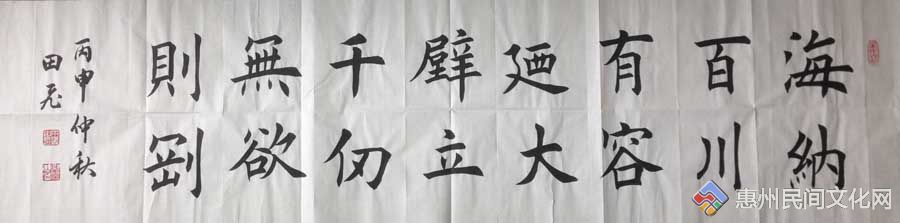 海納
百川
有容
廼大
壁立
千仞
無欲
則剛
丙申仲秋
田
惠州民间文化网